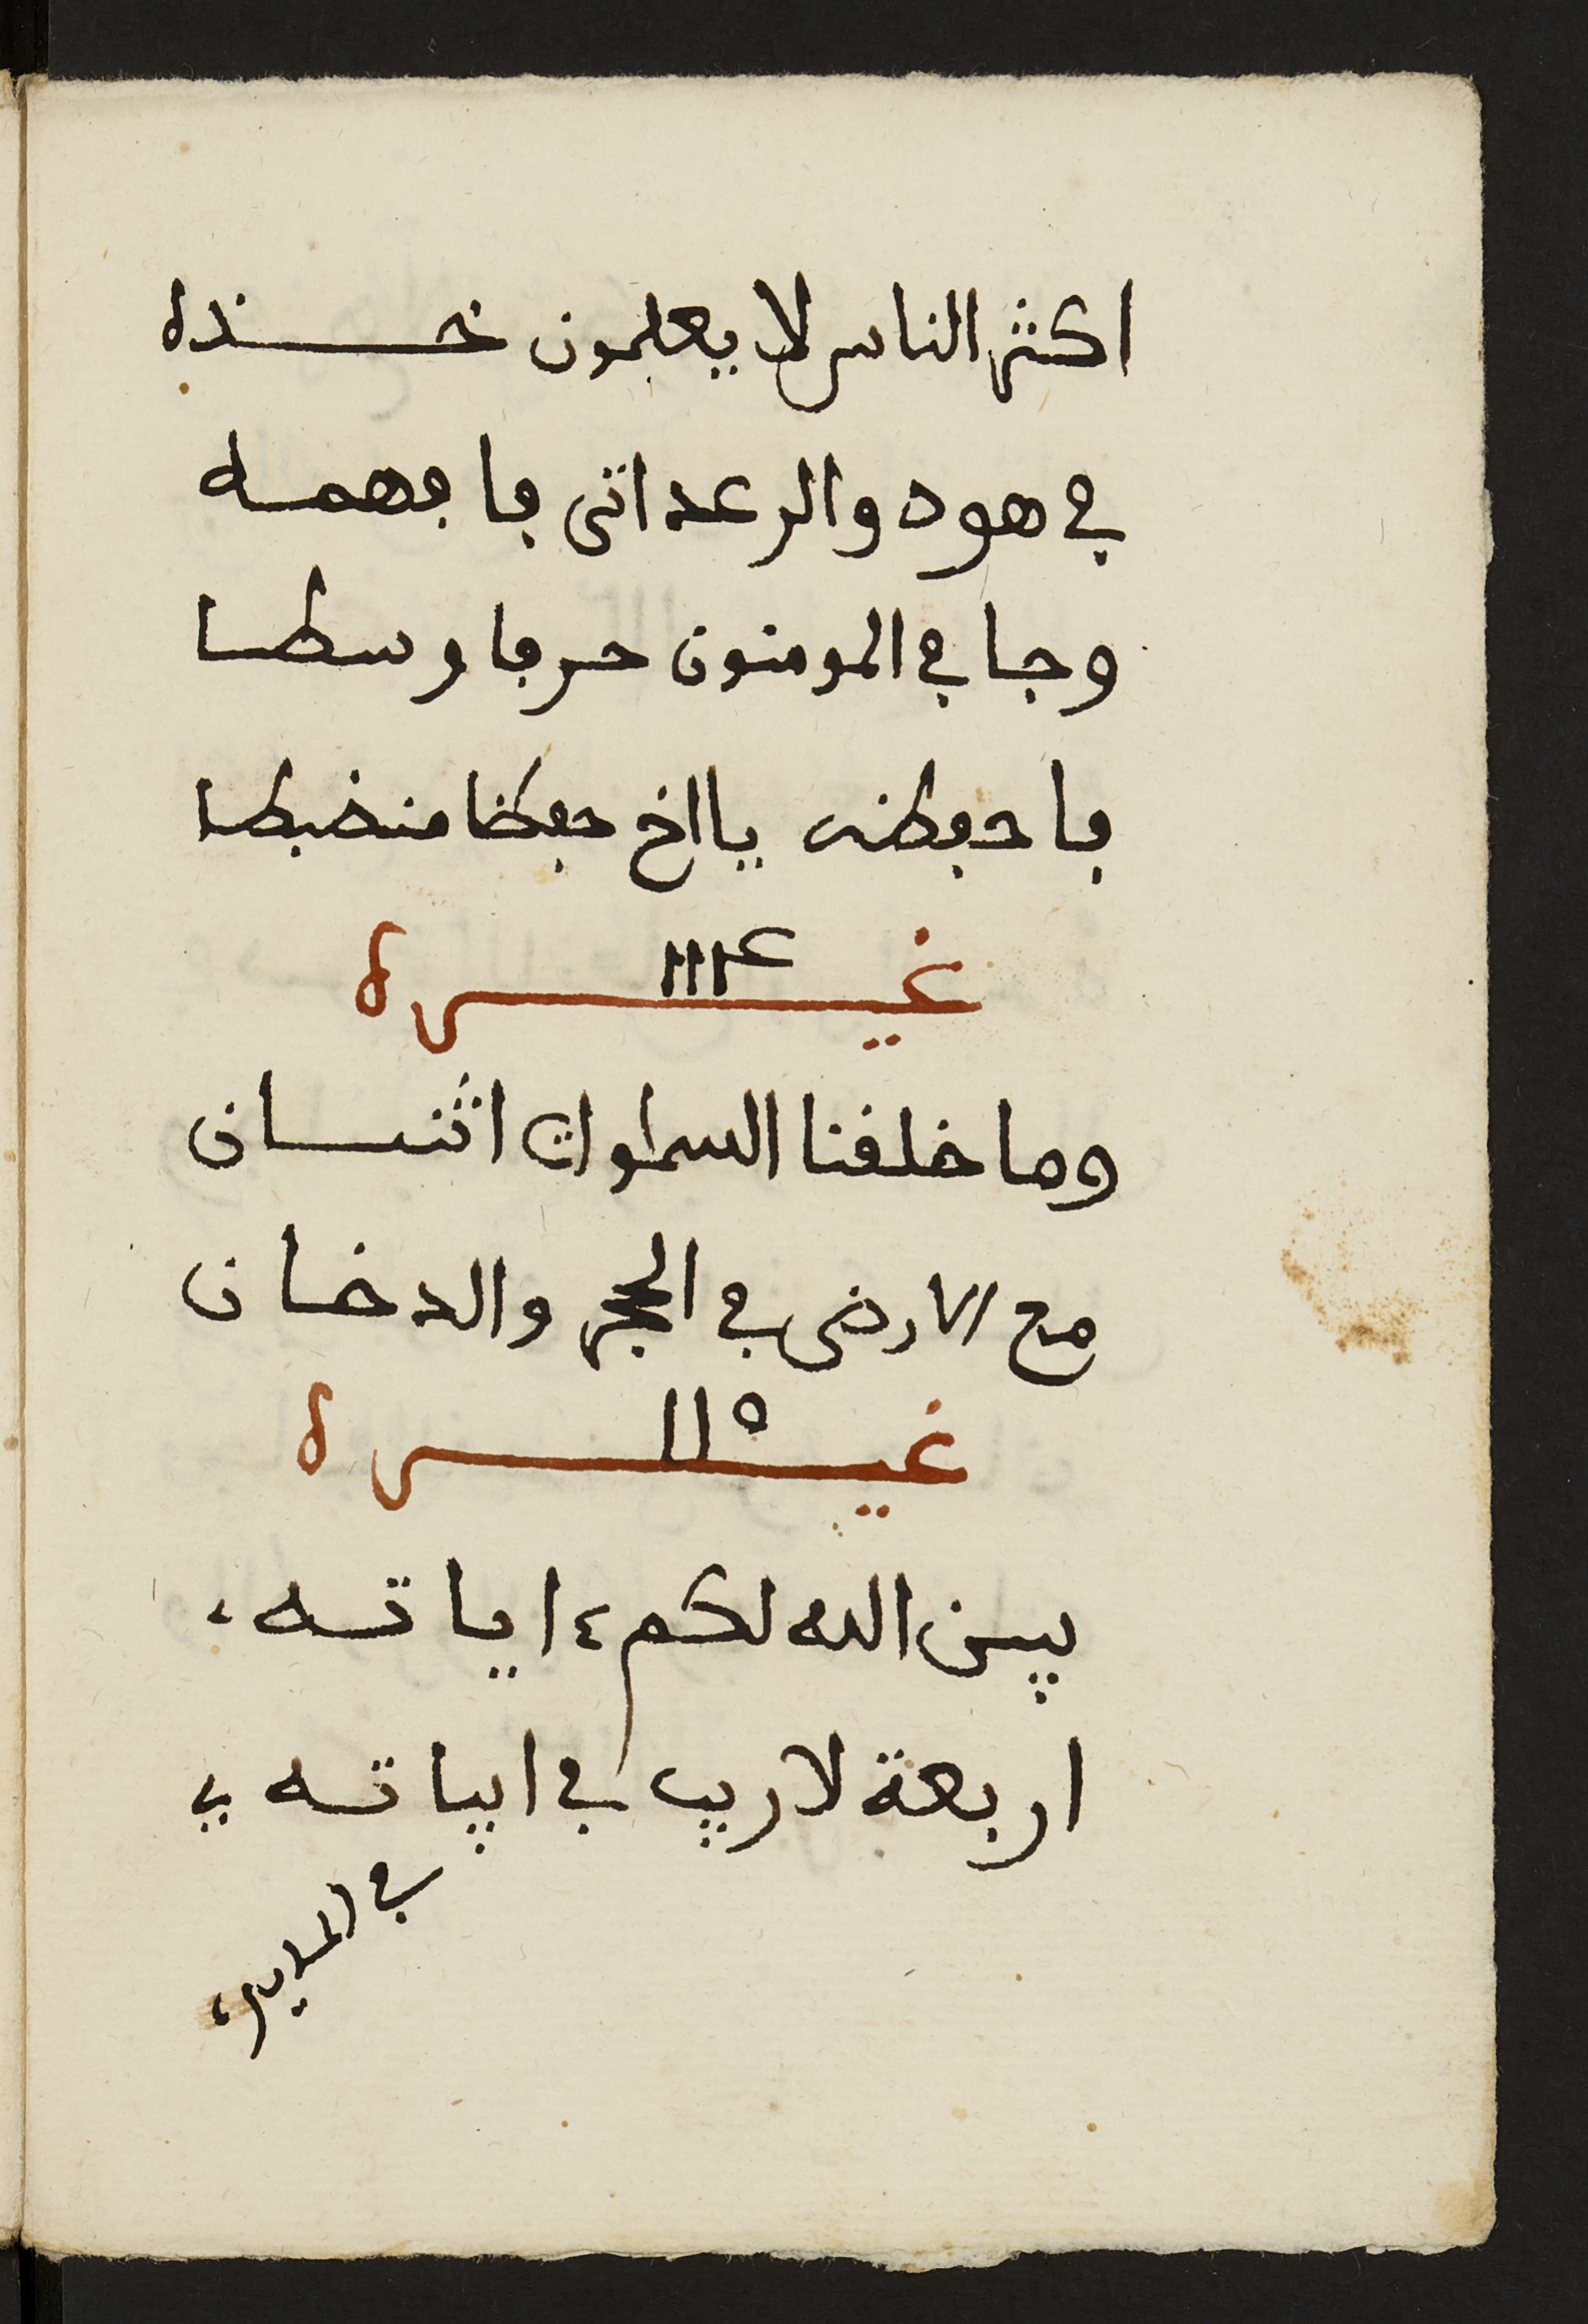 اكثر الناس لا يعلمون خذه
في هود والرعد اتى فافهمه
وجا في المومنون حرفا وسطا
فاحفظه يا اخ حفظا منضبطا
غيره ١١١٤
وما خلفنا السماوات اثنان
مع الارض في الحجر والدخان
غيره ١١٥
يبين الله لكم ءاياته
اربعة لا ريب في ابياته
في